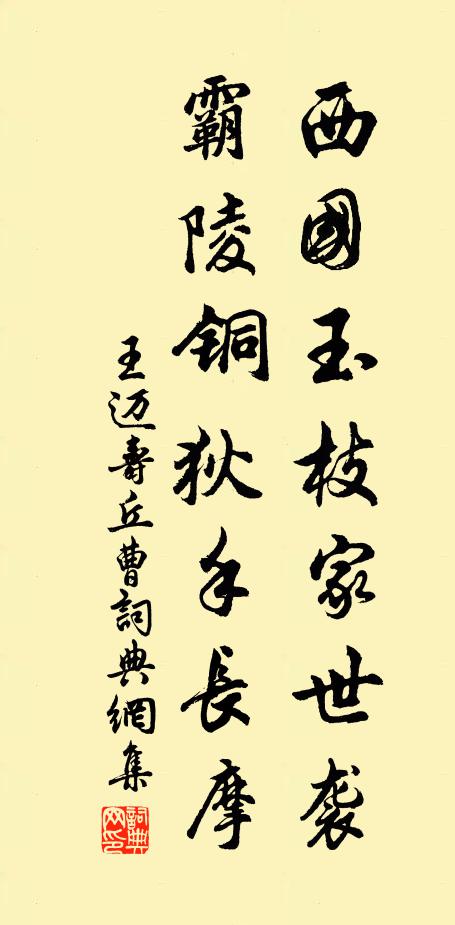 西國玉枝家世袭
霸陵铜狄手長摩
王迈壽丘曹詞典網集
詞典网印